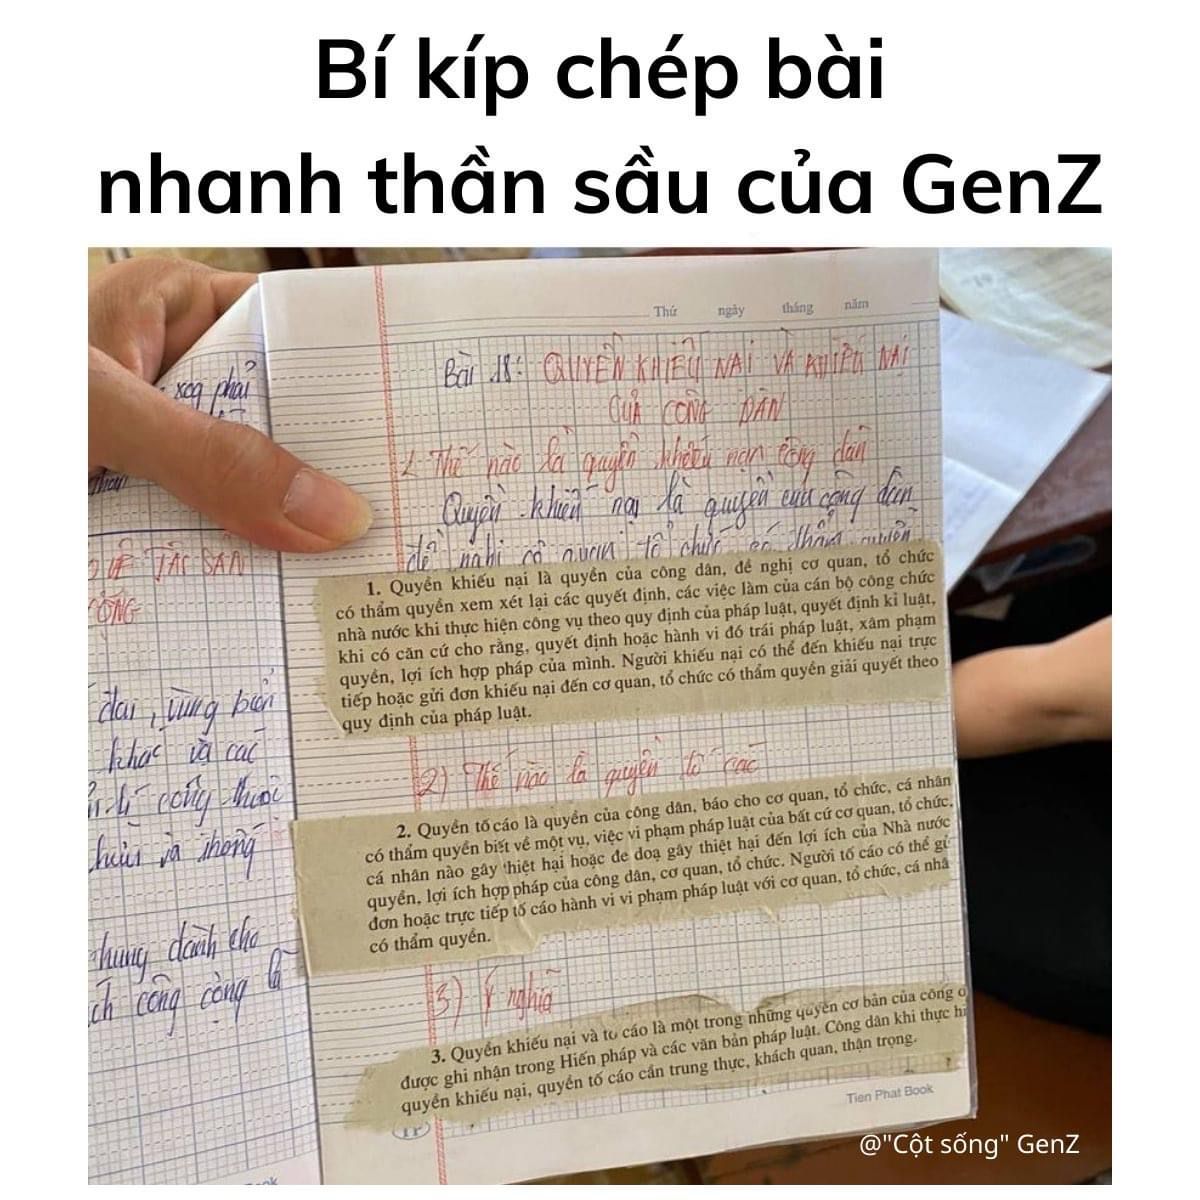 Bí kíp chép bài
nhanh thần sầu của GenZ
Thứ ngày tháng năm
Bài 18: QUYỀN KHIẾU NẠI VÀ KHIẾU NẠI
CỦA CÔNG DÂN
1. Thế nào là quyền khiếu nại công dân
Quyền khiếu nại là quyền của công dân
đề nghị cơ quan, tổ chức có thẩm quyền
1. Quyền khiếu nại là quyền của công dân, đề nghị cơ quan, tổ chức
có thẩm quyền xem xét lại các quyết định, các việc làm của cán bộ công chức
nhà nước khi thực hiện công vụ theo quy định của pháp luật, quyết định kỉ luật,
khi có căn cứ cho rằng, quyết định hoặc hành vi đó trái pháp luật, xâm phạm
quyền, lợi ích hợp pháp của mình. Người khiếu nại có thể đến khiếu nại trực
tiếp hoặc gửi đơn khiếu nại đến cơ quan, tổ chức có thẩm quyền giải quyết theo
quy định của pháp luật.
2) Thế nào là quyền tố cáo
2. Quyền tố cáo là quyền của công dân, báo cho cơ quan, tổ chức, cá nhân
có thẩm quyền biết về một vụ, việc vi phạm pháp luật của bất cứ cơ quan, tổ chức,
cá nhân nào gây thiệt hại hoặc đe doạ gây thiệt hại đến lợi ích của Nhà nước
quyền, lợi ích hợp pháp của công dân, cơ quan, tổ chức. Người tố cáo có thể gử
đơn hoặc trực tiếp tố cáo hành vi vi phạm pháp luật với cơ quan, tổ chức, cá nhâ
có thẩm quyền.
3) Ý nghĩa
3. Quyền khiếu nại và tố cáo là một trong những quyền cơ bản của công
được ghi nhận trong Hiến pháp và các văn bản pháp luật. Công dân khi thực hi
quyền khiếu nại, quyền tố cáo cần trung thực, khách quan, thận trọng.
Tien Phat Book
phải
TÀI SẢN
CỘNG
đai, vùng biển
khác và các
công thuộc
và thống
chung dành cho
ch công cộng là
@"Cột sống" GenZ